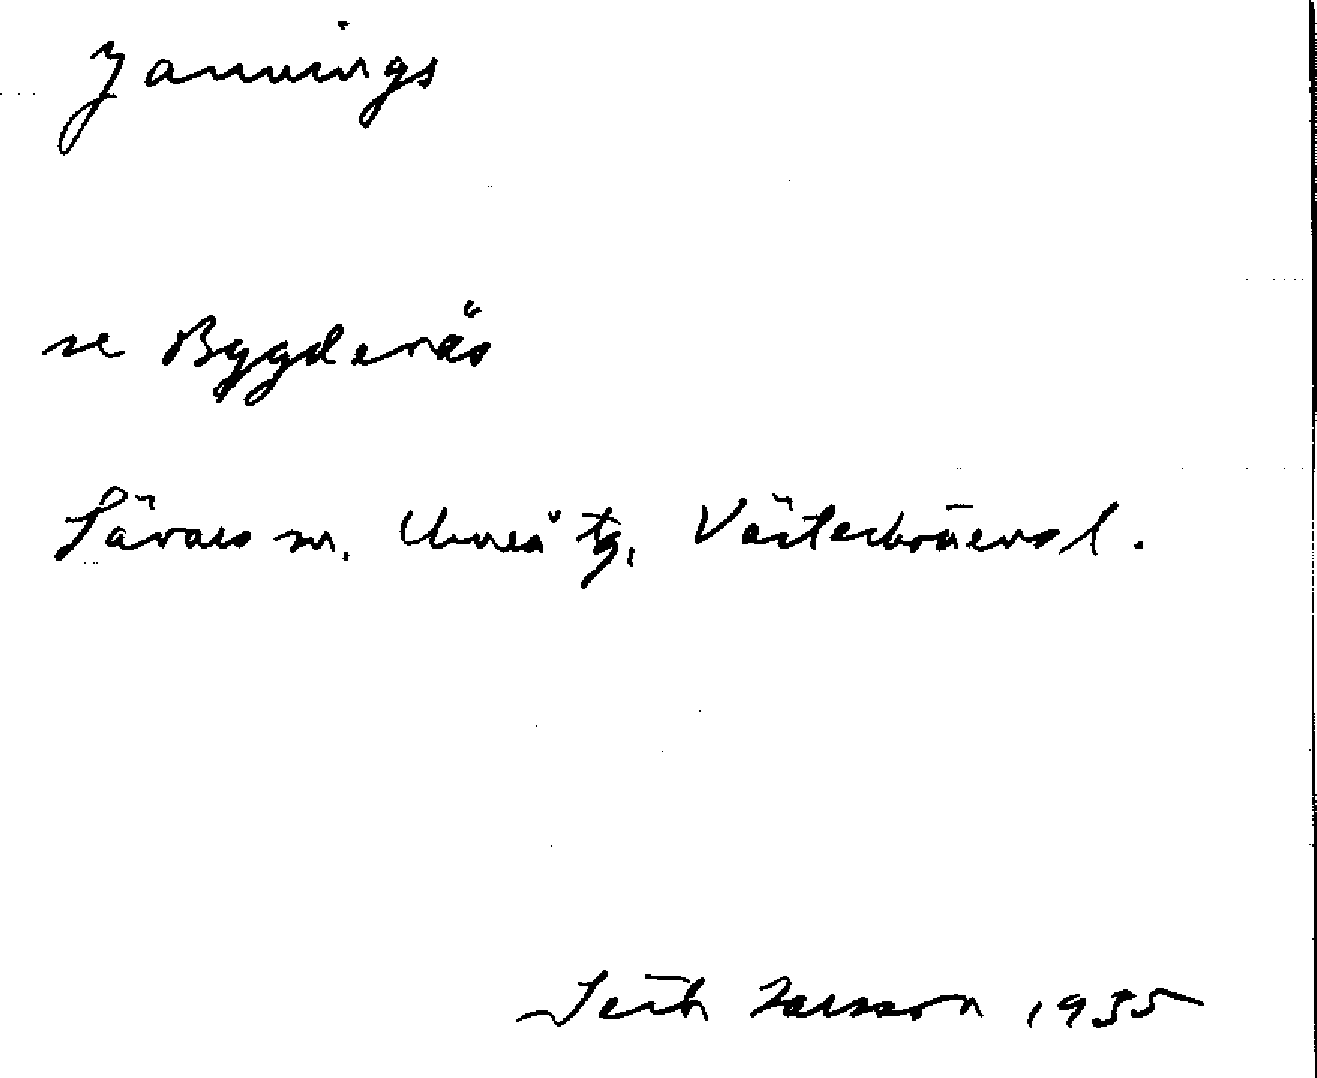 Jannings
se Bygderås
Sävars sn. Umeå tg. Västerbottensl.
Larsson 1935